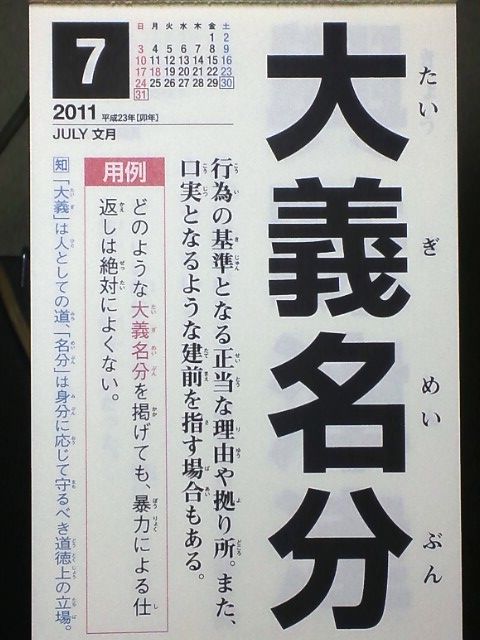 大義名分
たいぎめいぶん
行為の基準となる正当な理由や拠り所。また、
口実となるような建前を指す場合もある。
用例
どのような大義名分を掲げても、暴力による仕
返しは絶対によくない。
知「大義」は人としての道、「名分」は身分に応じて守るべき道徳上の立場。
7
日 月 火 水 木 金 土
1 2
3 4 5 6 7 8 9
10 11 12 13 14 15 16
17 18 19 20 21 22 23
24 25 26 27 28 29 30
31
2011 平成23年[卯年]
JULY 文月